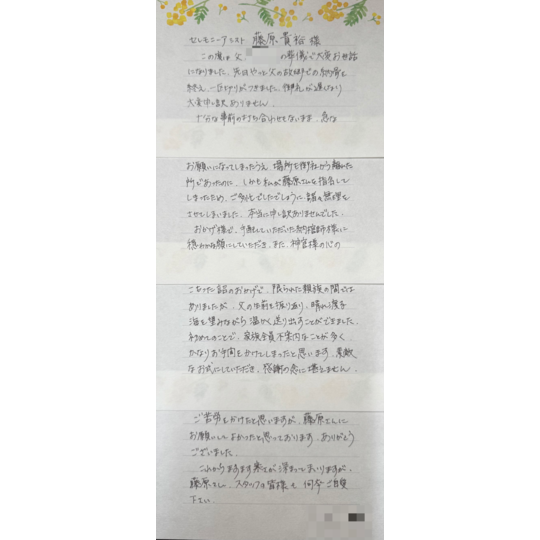 セレモニーアシスト 藤原貴裕様
この度は父 の葬儀で大変お世話
になりました。先日やっと父の故郷での納骨を
終え、一区切りがつきました。御礼が遅くなり
大変申し訳ありません。
十分な事前の打ち合わせもないまま、急な
お願いになってしまったうえ、場所も御社から離れた
所であったのに、しかも私が藤原さんを指名して
しまったため、ご多忙でしたでしょうに、諸々無理を
させてしまいました。本当に申し訳ありませんでした。
おかげ様で、手配していただいた納棺師様に
穏やかな顔にしていただき、また、神官様の心の
こもった話のおかげで、限られた親族の間では
ありましたが、父の生前を振り返り、晴れた逗子
海を望みながら温かく送り出すことができました。
初めてのことで、家族全員不案内なことが多く、
かなりお手間をかけてしまったと思います。素敵
なお式にしていただき、感謝の念に堪えません。
ご苦労をかけたと思いますが、藤原さんに
お願いしてよかったと思っております。ありがとう
ございました。
これからますます寒さが深まってまいりますが、
藤原さん、スタッフの皆様も何卒ご自愛
下さい。